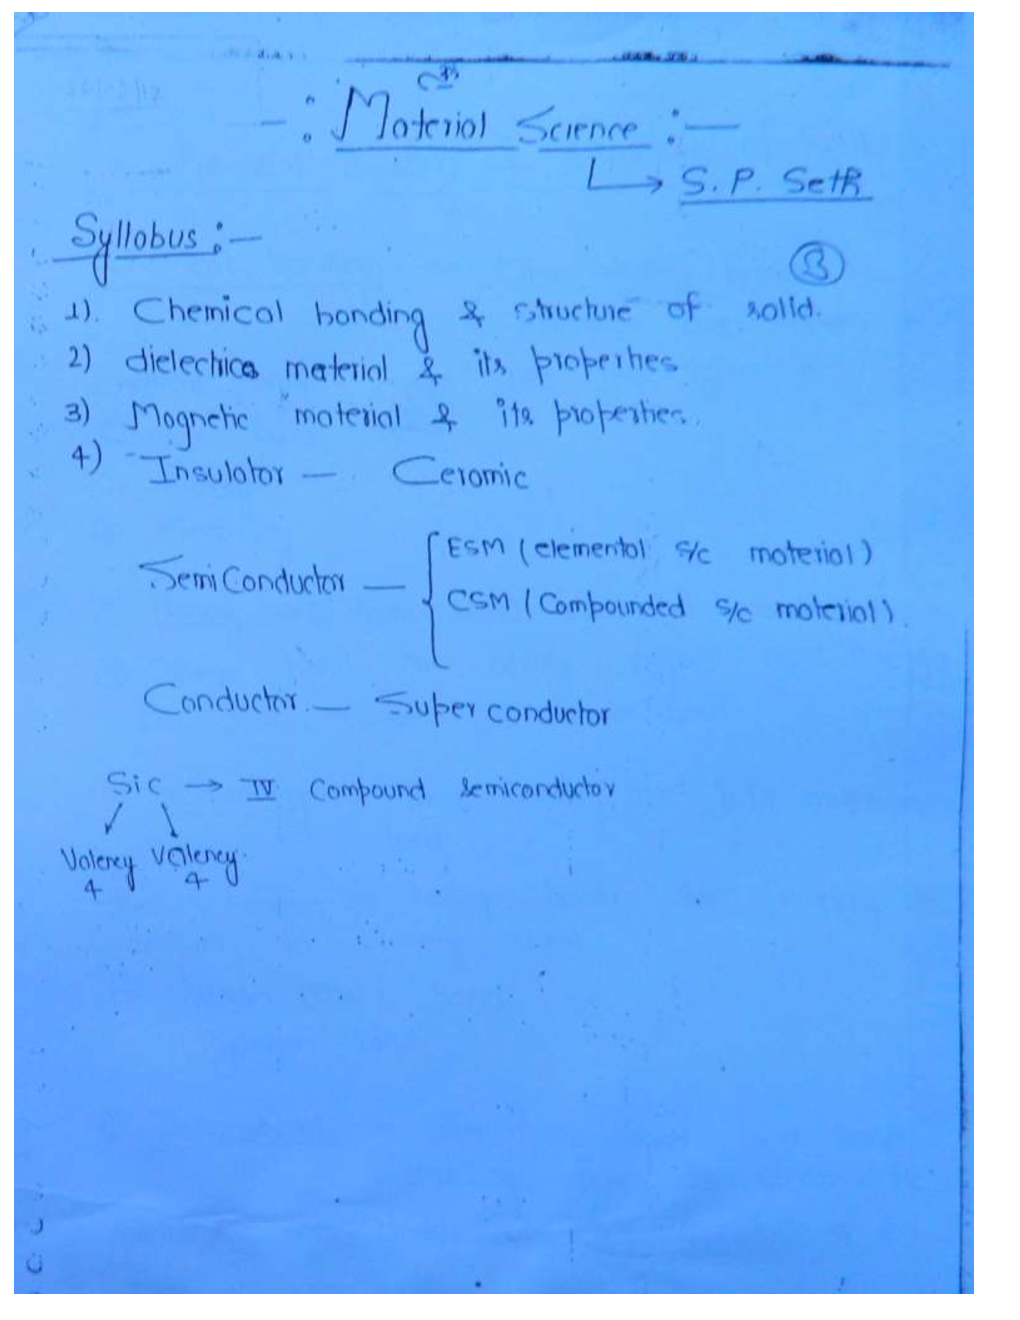 -: Material Science :-
↳ S. P. Seth
Syllabus :-
1). Chemical bonding & structure of solid.
2) dielectrics material & its properties
3) Magnetic material & its properties.
4) Insulator — Ceramic
SemiConductor — { ESM (elemental s/c material)
CSM (Compounded s/c material).
Conductor. — Super conductor
Sic → IV Compound semiconductor
Valency Valency
4 4